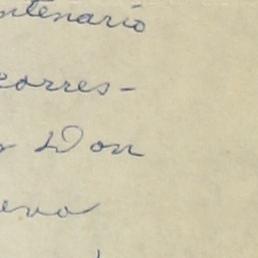 ntenario
corres-
Don
eva